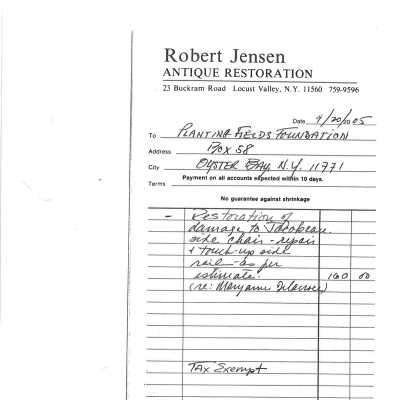 Robert Jensen
ANTIQUE RESTORATION
23 Buckram Road Locust Valley, N.Y. 11560 759-9596
Date 9/20/05
To PLANTING FIELDS FOUNDATION
Address BOX 58
City OYSTER BAY, N.Y. 11771
Payment on all accounts expected within 10 days.
Terms
No guarantee against shrinkage
- Restoration of
damage to Jacobean
side chair - repair
+ touch-up side
rail - as per
estimate. 160 00
(re: Maryanne
TAX Exempt